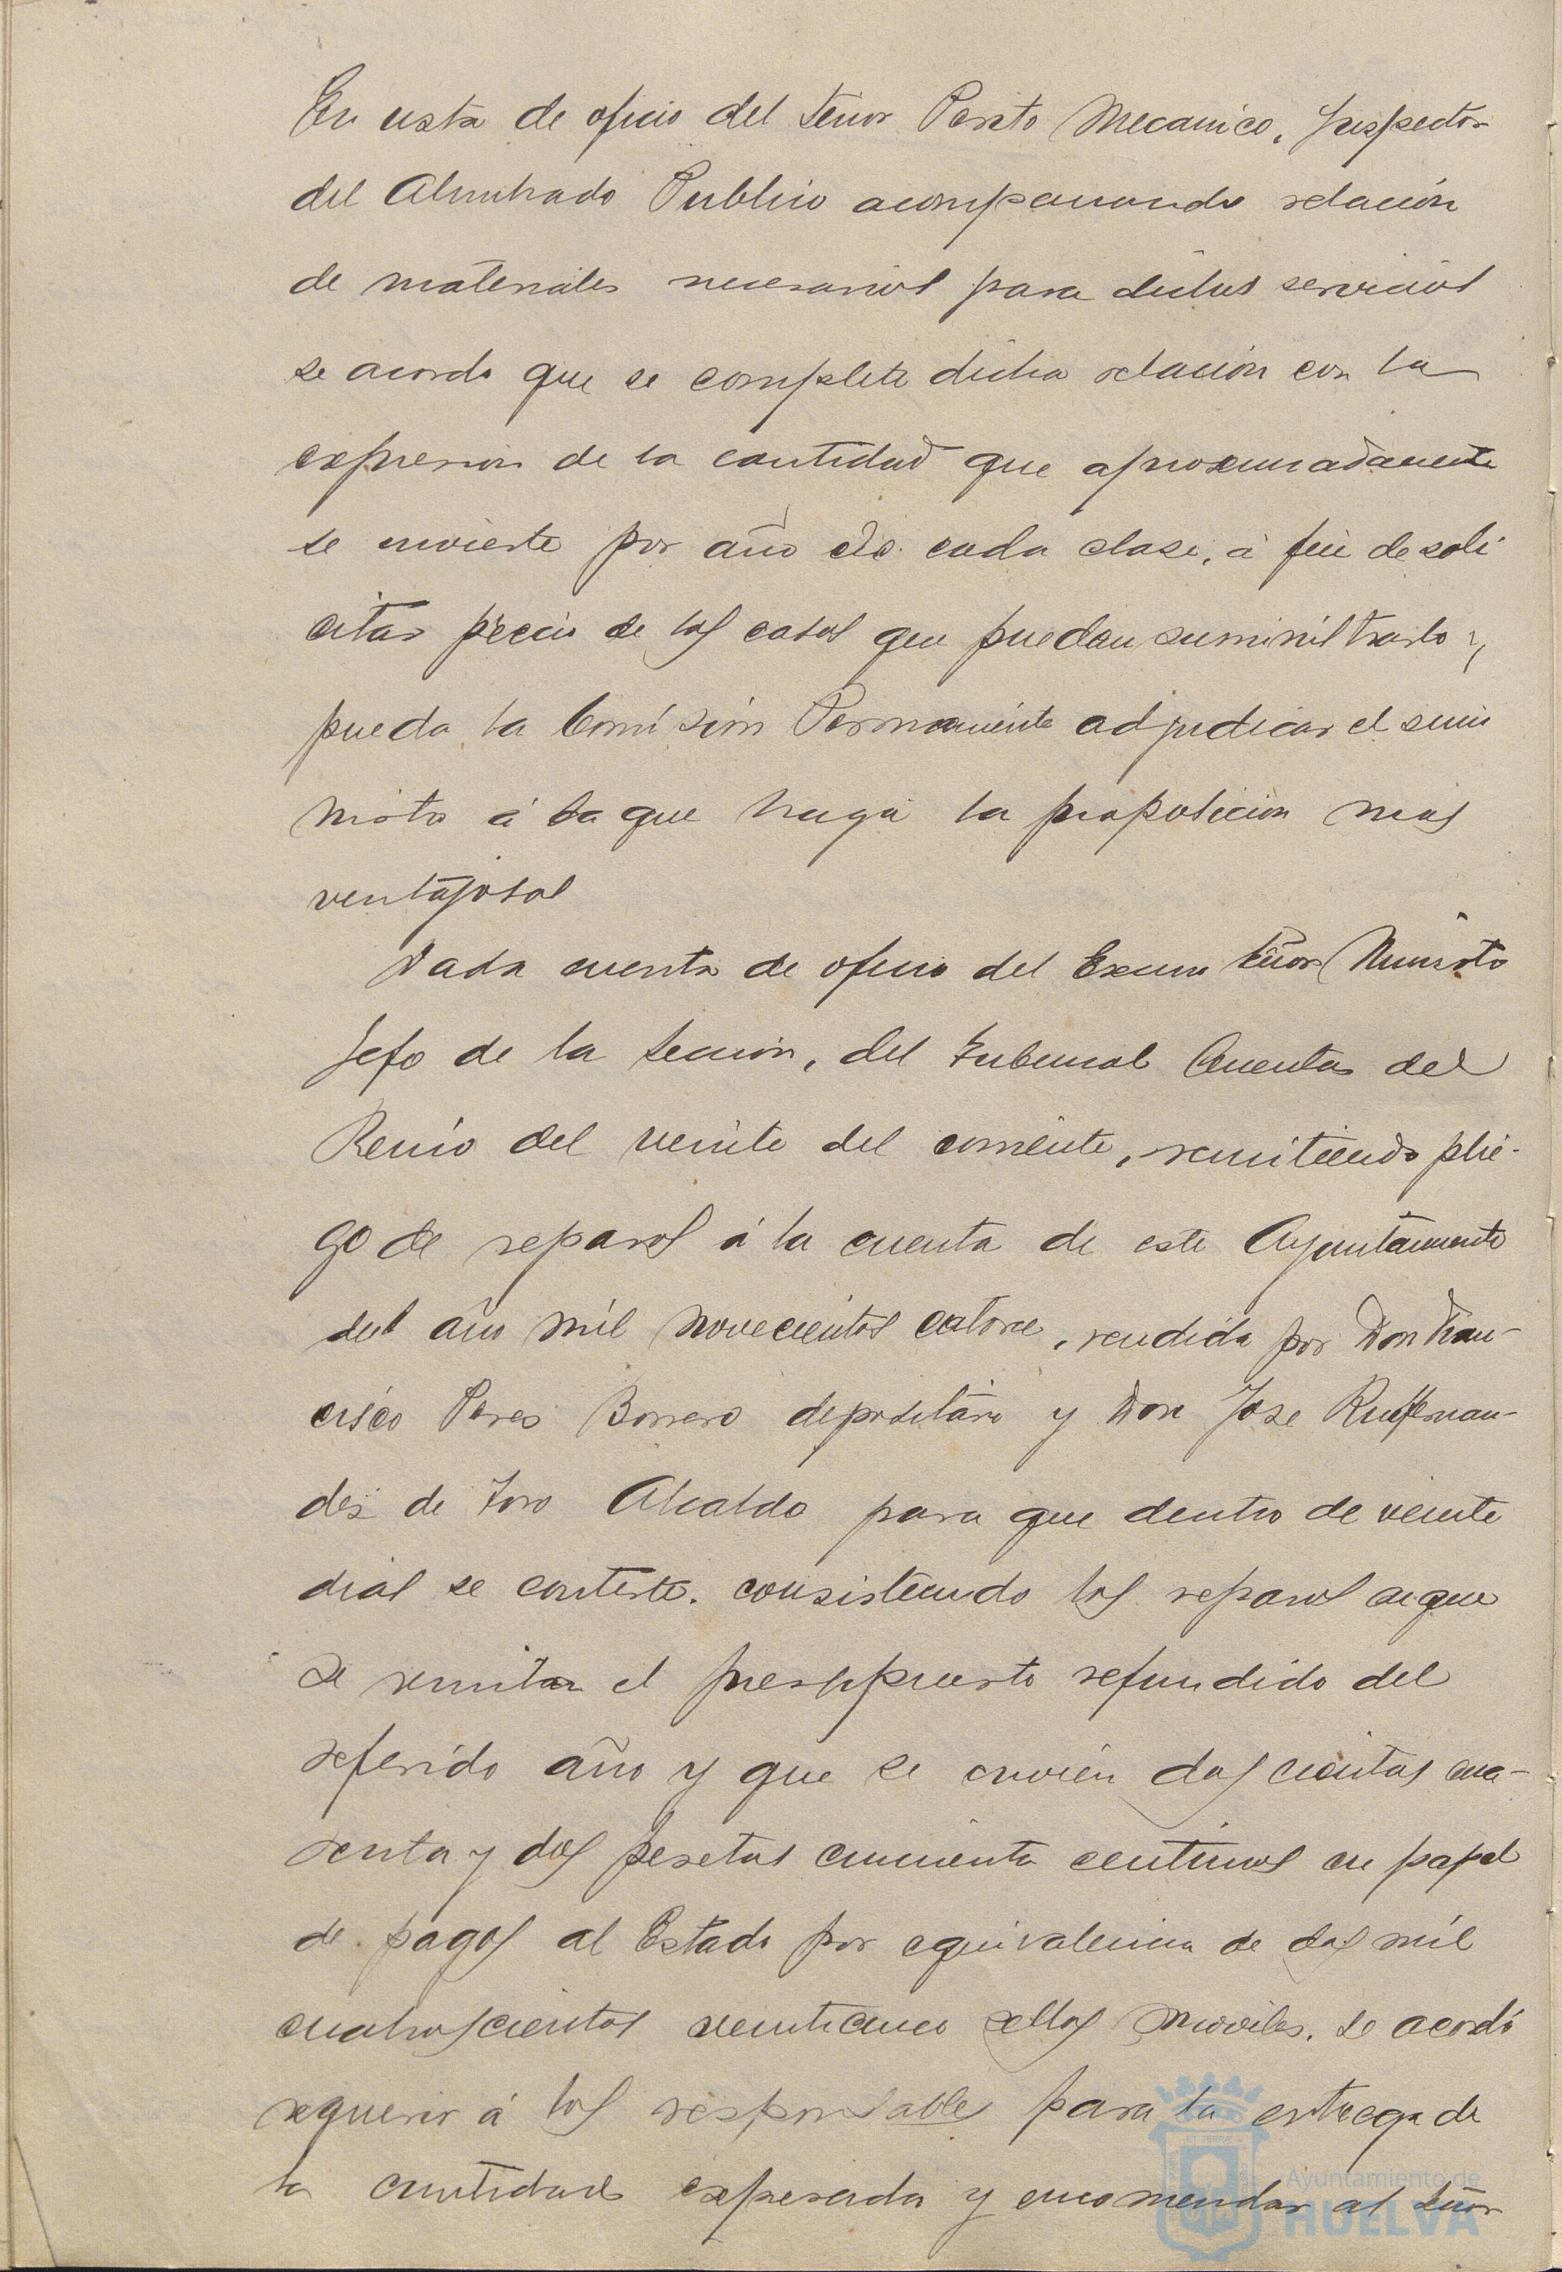 En vista de oficio del Señor Perito Mecanico, Inspector
del Alumbrado Publico acompañando relación
de materiales necesarios para dichos servicios
se acordo que se complete dicha relación con la
expresion de la cantidad que aproximadamente
se invierte por año de cada clase, á fin de soli
citar precio de las casas que puedan suministrarlo y
pueda la Comisión Permanente adjudicar el sumi
nistro á la que haga la proposicion mas
ventajosas
Dada cuenta de oficio del Excmo Señor Ministro
Jefe de la Sección, del Tribunal Cuentas del
Reino del veinte del corriente, remitiendo plie-
go de reparos á la cuenta de este Ayuntamiento
del año mil novecientos catorce, rendida por Don Fran-
cisco Peres Borrero depositario y Don Jose Ruifernan-
des de Toro Alcalde para que dentro de veinte
dias se conteste. consistiendo los reparos en que
se remita el presupuesto refundido del
referido año y que se envien dos cientas cua-
renta y dos pesetas cincuenta centimos en papel
de pagos al Estado por equivalencia de dos mil
cuatroscientos veinticinco sellos moviles. Se acordó
requerir á los responsables para la entrega de
la cantidad expresada y encomendar al Señor
Ayuntamiento de
HUELVA